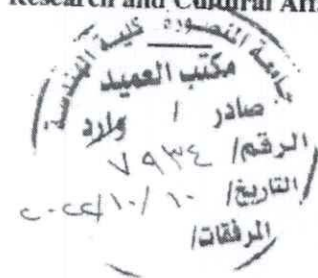 Research and Cultural Aff
جامعة المنصورة كلية الهندسة
مكتب العميد
صادر / وارد
الرقم/ ٧٩٣٤
التاريخ/ ١٠/١٠/٢٠٢٢
المرفقات/